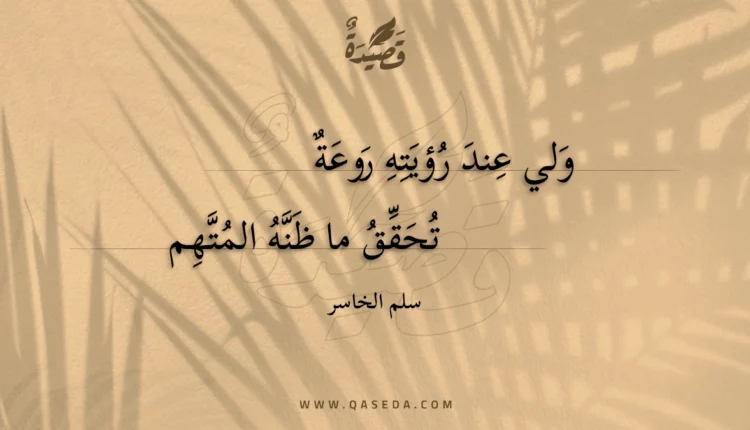 قَصِيْدَةٌ
وَلي عِندَ رُؤيَتِهِ رَوعَةٌ
تُحَقِّقُ ما ظَنَّهُ المُتَّهِم
سلم الخاسر
WWW.QASEDA.COM